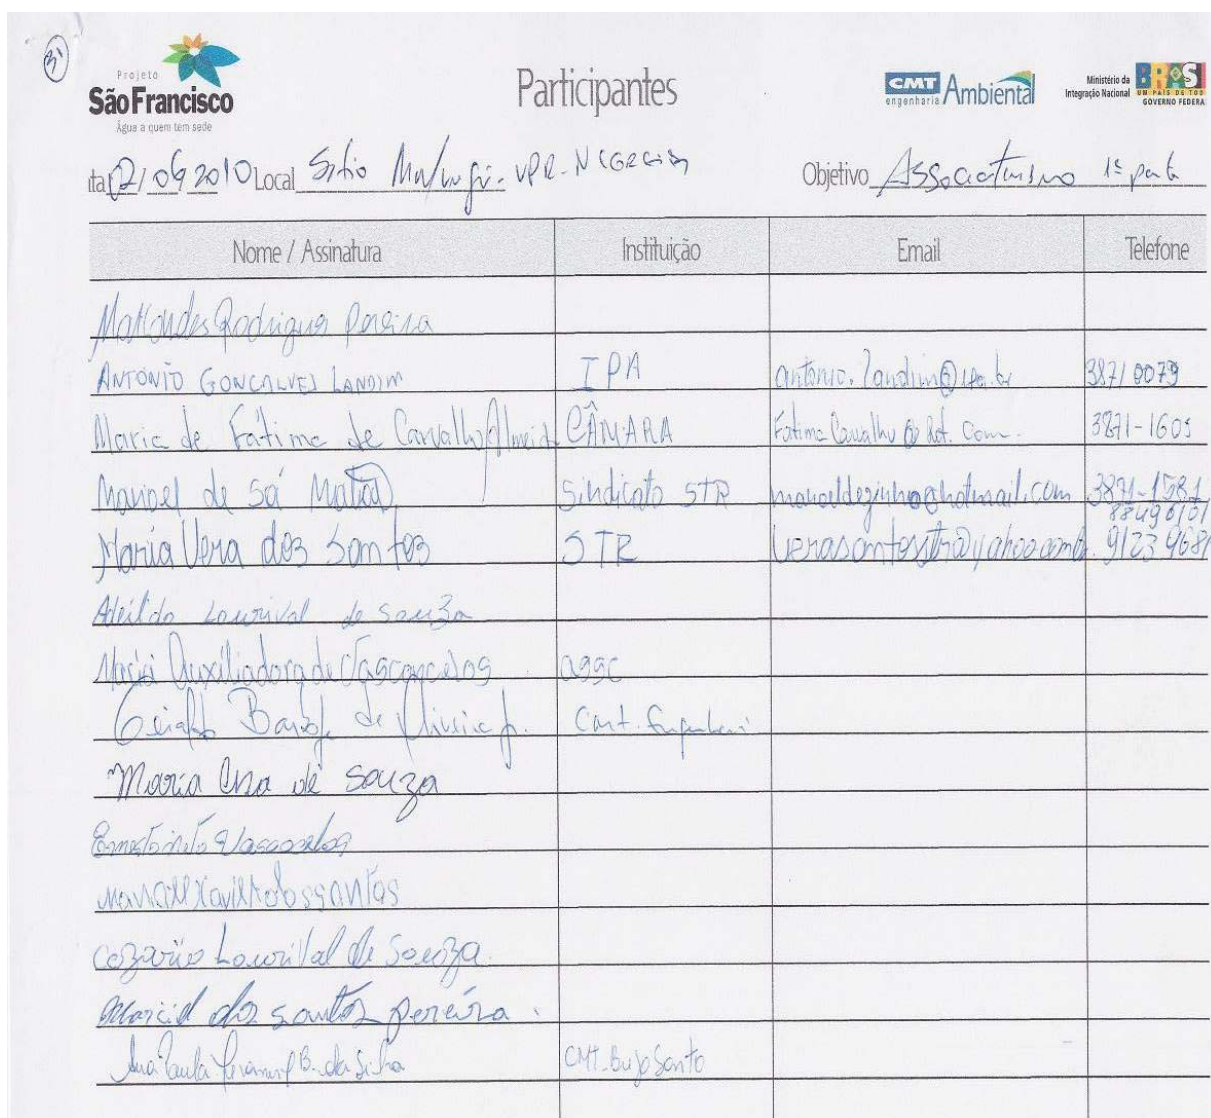 31
Projeto
São Francisco
Água a quem tem sede
Participantes
CMT
engenharia Ambiental
Ministério da
Integração Nacional
BRASI
UM PAÍS DE TOD
GOVERNO FEDERA
ta 02/09/2010 Local Sitio VPR-Negreiros Objetivo Associativismo 1ª parte
Nome / Assinatura Instituição Email Telefone
Rodrigues Pereira
ANTONIO GONCALVES LANDIM IPA antonio.landim@ipa.br 38710079
Maria de Fátima de Carvalho Almeida CÂMARA Fatima Carvalho @ hot. Com. 3871-1605
Manoel de Sá Sindicato STR manoeldezinho@hotmail.com 3871-1581
88496101
Maria Vera dos Santos STR verasantosstr@yahoo.com.br 9123 9681
Adeildo Lourival de Souza
Maria Auxiliadora de Vasconcelos assc
Geraldo de Oliveira Jr. Cmt. Engenharia
Maria Ana de Souza
Ernesto Neto Vasconcelos
Xavier dos santos
Cezario Lourival de Souza.
dos santos pereira.
Ana Paula B. da Silva CMT-Brejo Santo